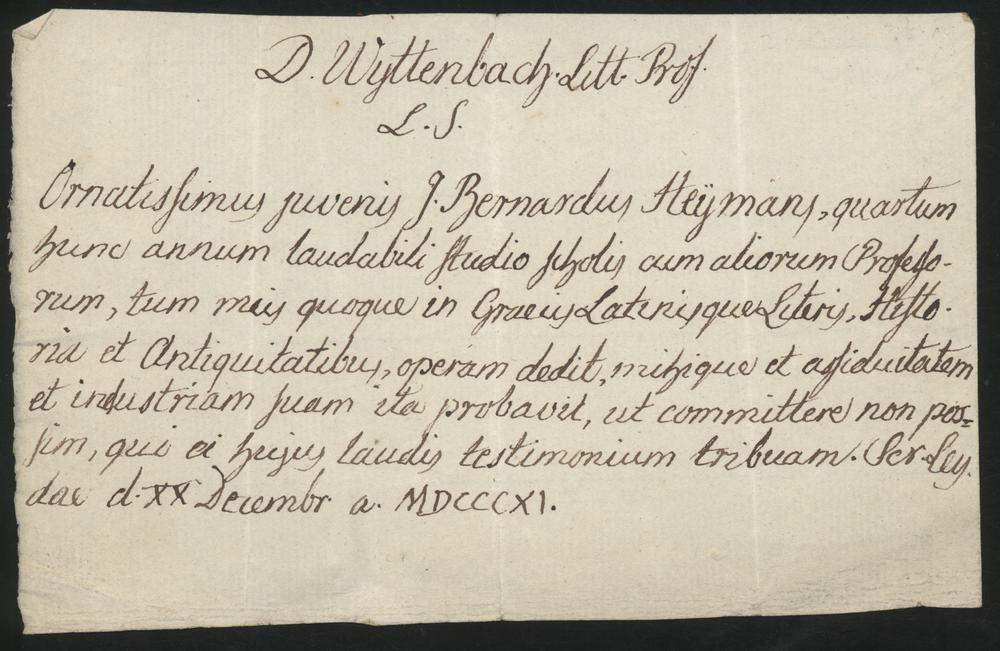 D. Wyttenbach. Litt. Prof.
L. S.
Ornatissimus juvenis J. Bernardus Heÿmans, quartum
hunc annum laudabili studio scholis cum aliorum Professo-
rum, tum meis quoque in Graecis Latinisque Literis, Histo-
ria et Antiquitatibus, operam dedit, mihique et assiduitatem
et industriam suam ita probavit, ut committere non pos=
sim, qui ei hujus laudis testimonium tribuam. Scr. Ley.
dae d. XX Decembr a. MDCCCXI.